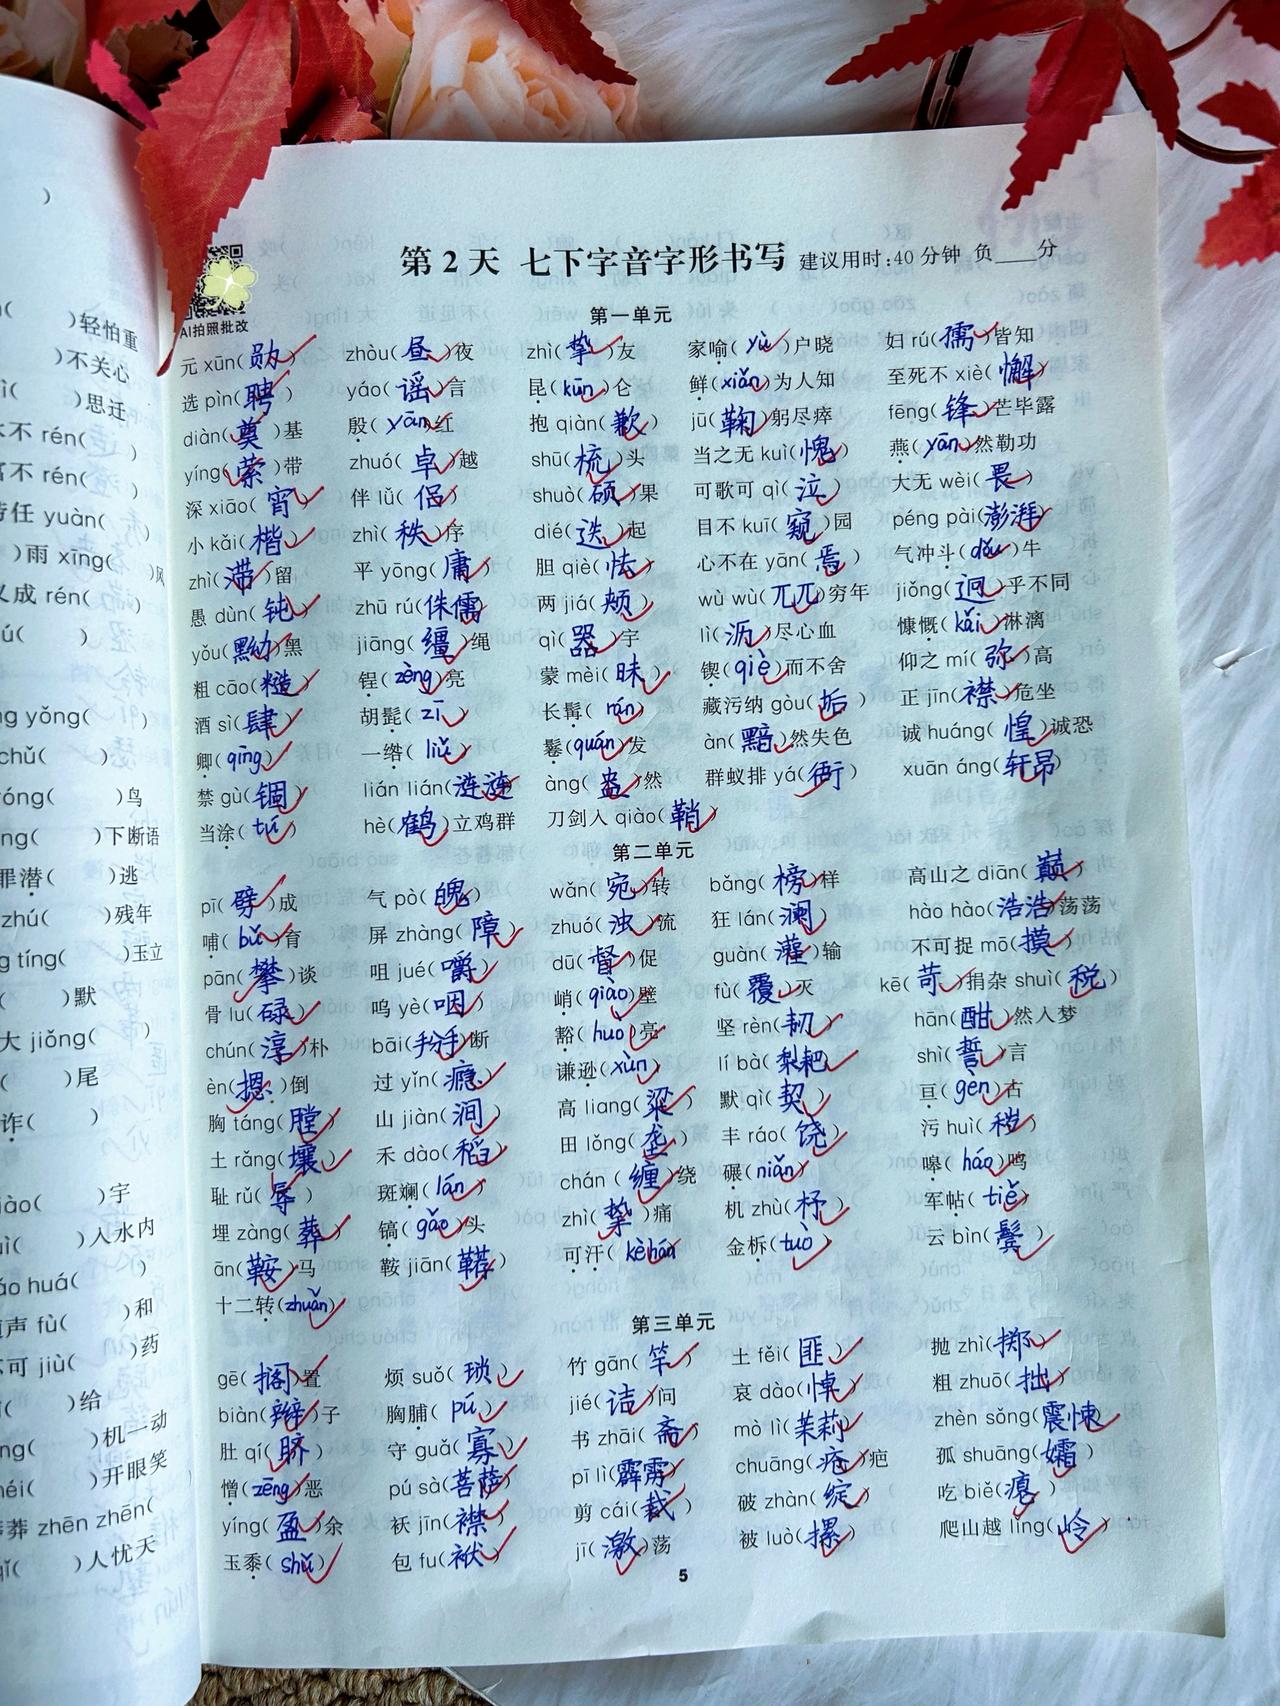 )
)轻怕重
)不关心
)思迁
不 rén( )
不 rén( )
任 yuàn( )
)雨 xīng( )风
成 rén( )
ú( )
yǒng( )
chǔ( )
)鸟
)下断语
潜( )逃
zhú( )残年
tíng( )玉立
( )默
大 jiǒng( )
( )尾
诈( )
)宇
)人水内
huá( )
声 fù( )和
可 jiù( )药
)给
)机一动
)开眼笑
莽 zhēn zhēn(
)人忧天
AI拍照批改
第 2 天 七下字音字形书写 建议用时:40 分钟 负____分
第一单元
元 xūn(勋) zhòu(昼)夜 zhì(挚)友 家喻(yù)户晓 妇 rú(孺)皆知
选 pìn(聘) yáo(谣)言 昆(kūn)仑 鲜(xiǎn)为人知 至死不 xiè(懈)
diàn(奠)基 殷(yān)红 抱 qiàn(歉) jū(鞠)躬尽瘁 fēng(锋)芒毕露
yíng(萦)带 zhuó(卓)越 shū(梳)头 当之无 kuì(愧) 燕(yān)然勒功
深 xiāo(宵) 伴 lǚ(侣) shuò(硕)果 可歌可 qì(泣) 大无 wèi(畏)
小 kǎi(楷) zhì(秩)序 dié(迭)起 目不 kuī(窥)园 péng pài(澎湃)
zhì(滞)留 平 yōng(庸) 胆 qiè(怯) 心不在 yān(焉) 气冲斗(dǒu)牛
愚 dùn(钝) zhū rú(侏儒) 两 jiá(颊) wù wù(兀兀)穷年 jiǒng(迥)乎不同
yǒu(黝)黑 jiāng(缰)绳 qì(器)宇 lì(沥)尽心血 慷慨(kǎi)淋漓
粗 cāo(糙) 锃(zèng)亮 蒙 mèi(昧) 锲(qiè)而不舍 仰之 mí(弥)高
酒 sì(肆) 胡髭(zī) 长髯(rán) 藏污纳 gòu(垢) 正 jīn(襟)危坐
卿(qīng) 一绺(liǔ) 鬈(quán)发 àn(黯)然失色 诚 huáng(惶)诚恐
禁 gù(锢) lián lián(涟涟) àng(盎)然 群蚁排 yá(衙) xuān áng(轩昂)
当涂(tú) hè(鹤)立鸡群 刀剑入 qiào(鞘)
第二单元
pī(劈)成 气 pò(魄) wǎn(宛)转 bǎng(榜)样 高山之 diān(巅)
哺(bǔ)育 屏 zhàng(障) zhuó(浊)流 狂 lán(澜) hào hào(浩浩)荡荡
pān(攀)谈 咀 jué(嚼) dū(督)促 guàn(灌)输 不可捉 mō(摸)
骨 lu(碌) 呜 yè(咽) 峭(qiào)壁 fù(覆)灭 kē(苛)捐杂 shuì(税)
chún(淳)朴 bāi(掰)断 豁(huò)亮 坚 rèn(韧) hān(酣)然入梦
èn(摁)倒 过 yǐn(瘾) 谦逊(xùn) lí bà(犁耙) shì(誓)言
胸 táng(膛) 山 jiàn(涧) 高 liang(粱) 默 qì(契) 亘(gèn)古
土 rǎng(壤) 禾 dào(稻) 田 lǒng(垄) 丰 ráo(饶) 污 huì(秽)
耻 rǔ(辱) 斑斓(lán) chán(缠)绕 碾(niǎn) 嗥(háo)鸣
埋 zàng(葬) 镐(gǎo)头 zhì(挚)痛 机 zhù(杼) 军帖(tiě)
ān(鞍)马 鞍 jiān(鞯) 可汗(kè hán) 金柝(tuò) 云 bìn(鬓)
十二转(zhuǎn)
第三单元
gē(搁)置 烦 suǒ(琐) 竹 gān(竿) 土 fěi(匪) 抛 zhì(掷)
biàn(辫)子 胸脯(pú) jié(诘)问 哀 dào(悼) 粗 zhuō(拙)
肚 qí(脐) 守 guǎ(寡) 书 zhāi(斋) mò lì(茉莉) zhèn sǒng(震悚)
憎(zēng)恶 pú sà(菩萨) pī lì(霹雳) chuāng(疮)疤 孤 shuāng(孀)
yíng(盈)余 袄 jīn(襟) 剪 cái(裁) 破 zhàn(绽) 吃 biě(瘪)
玉黍(shǔ) 包 fu(袱) jī(激)荡 被 luò(摞) 爬山越 lǐng(岭)
5